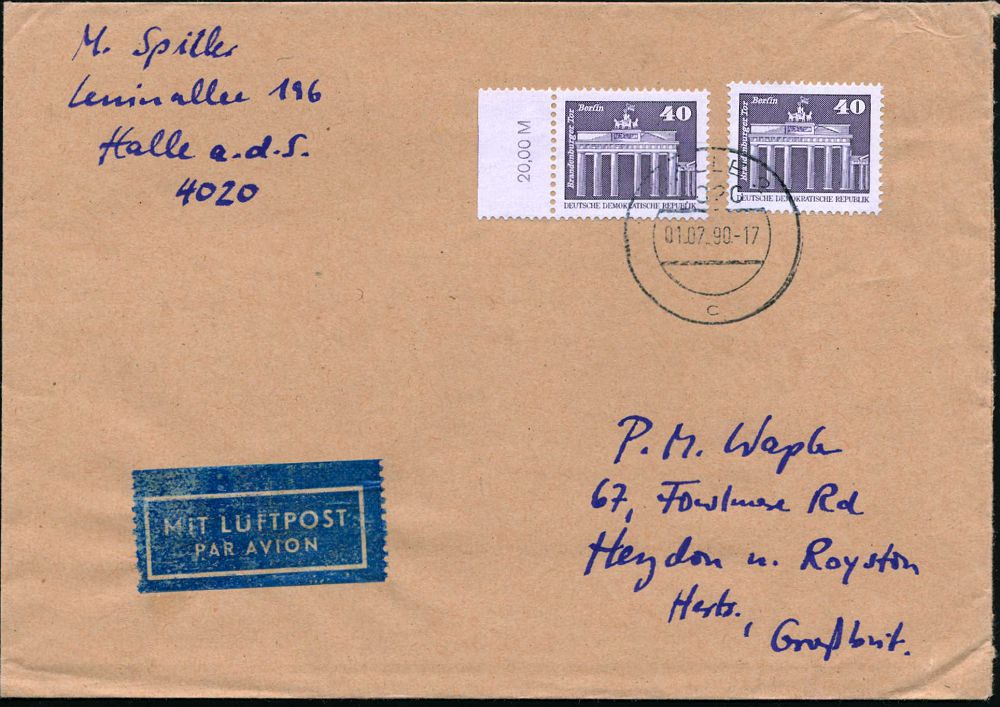 M. Spiller
Leninallee 186
Halle a.d.S.
4020
20,00 M
Berlin
40
Brandenburger Tor
DEUTSCHE DEMOKRATISCHE REPUBLIK
Berlin
40
Brandenburger Tor
DEUTSCHE DEMOKRATISCHE REPUBLIK
01.07.90-17
c
MIT LUFTPOST
PAR AVION
P. M. Wapler
67, Fowlmere Rd
Heydon n. Royston
Herts.,
Großbrit.